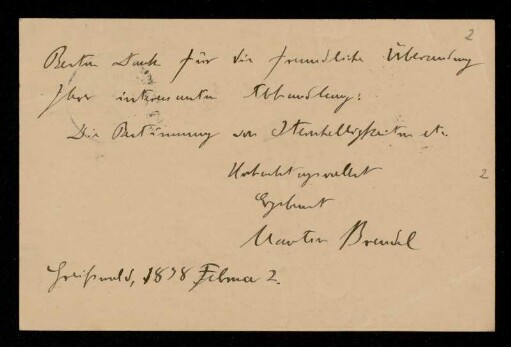 2
Besten Dank für die freundliche Übersendung
Ihrer interessanten Abhandlung:
Die Bestimmung von Sternhelligkeiten etc.
Hochachtungsvollst
Ergebenst
Martin Brendel
2
Greifswald, 1898 Februar 2.